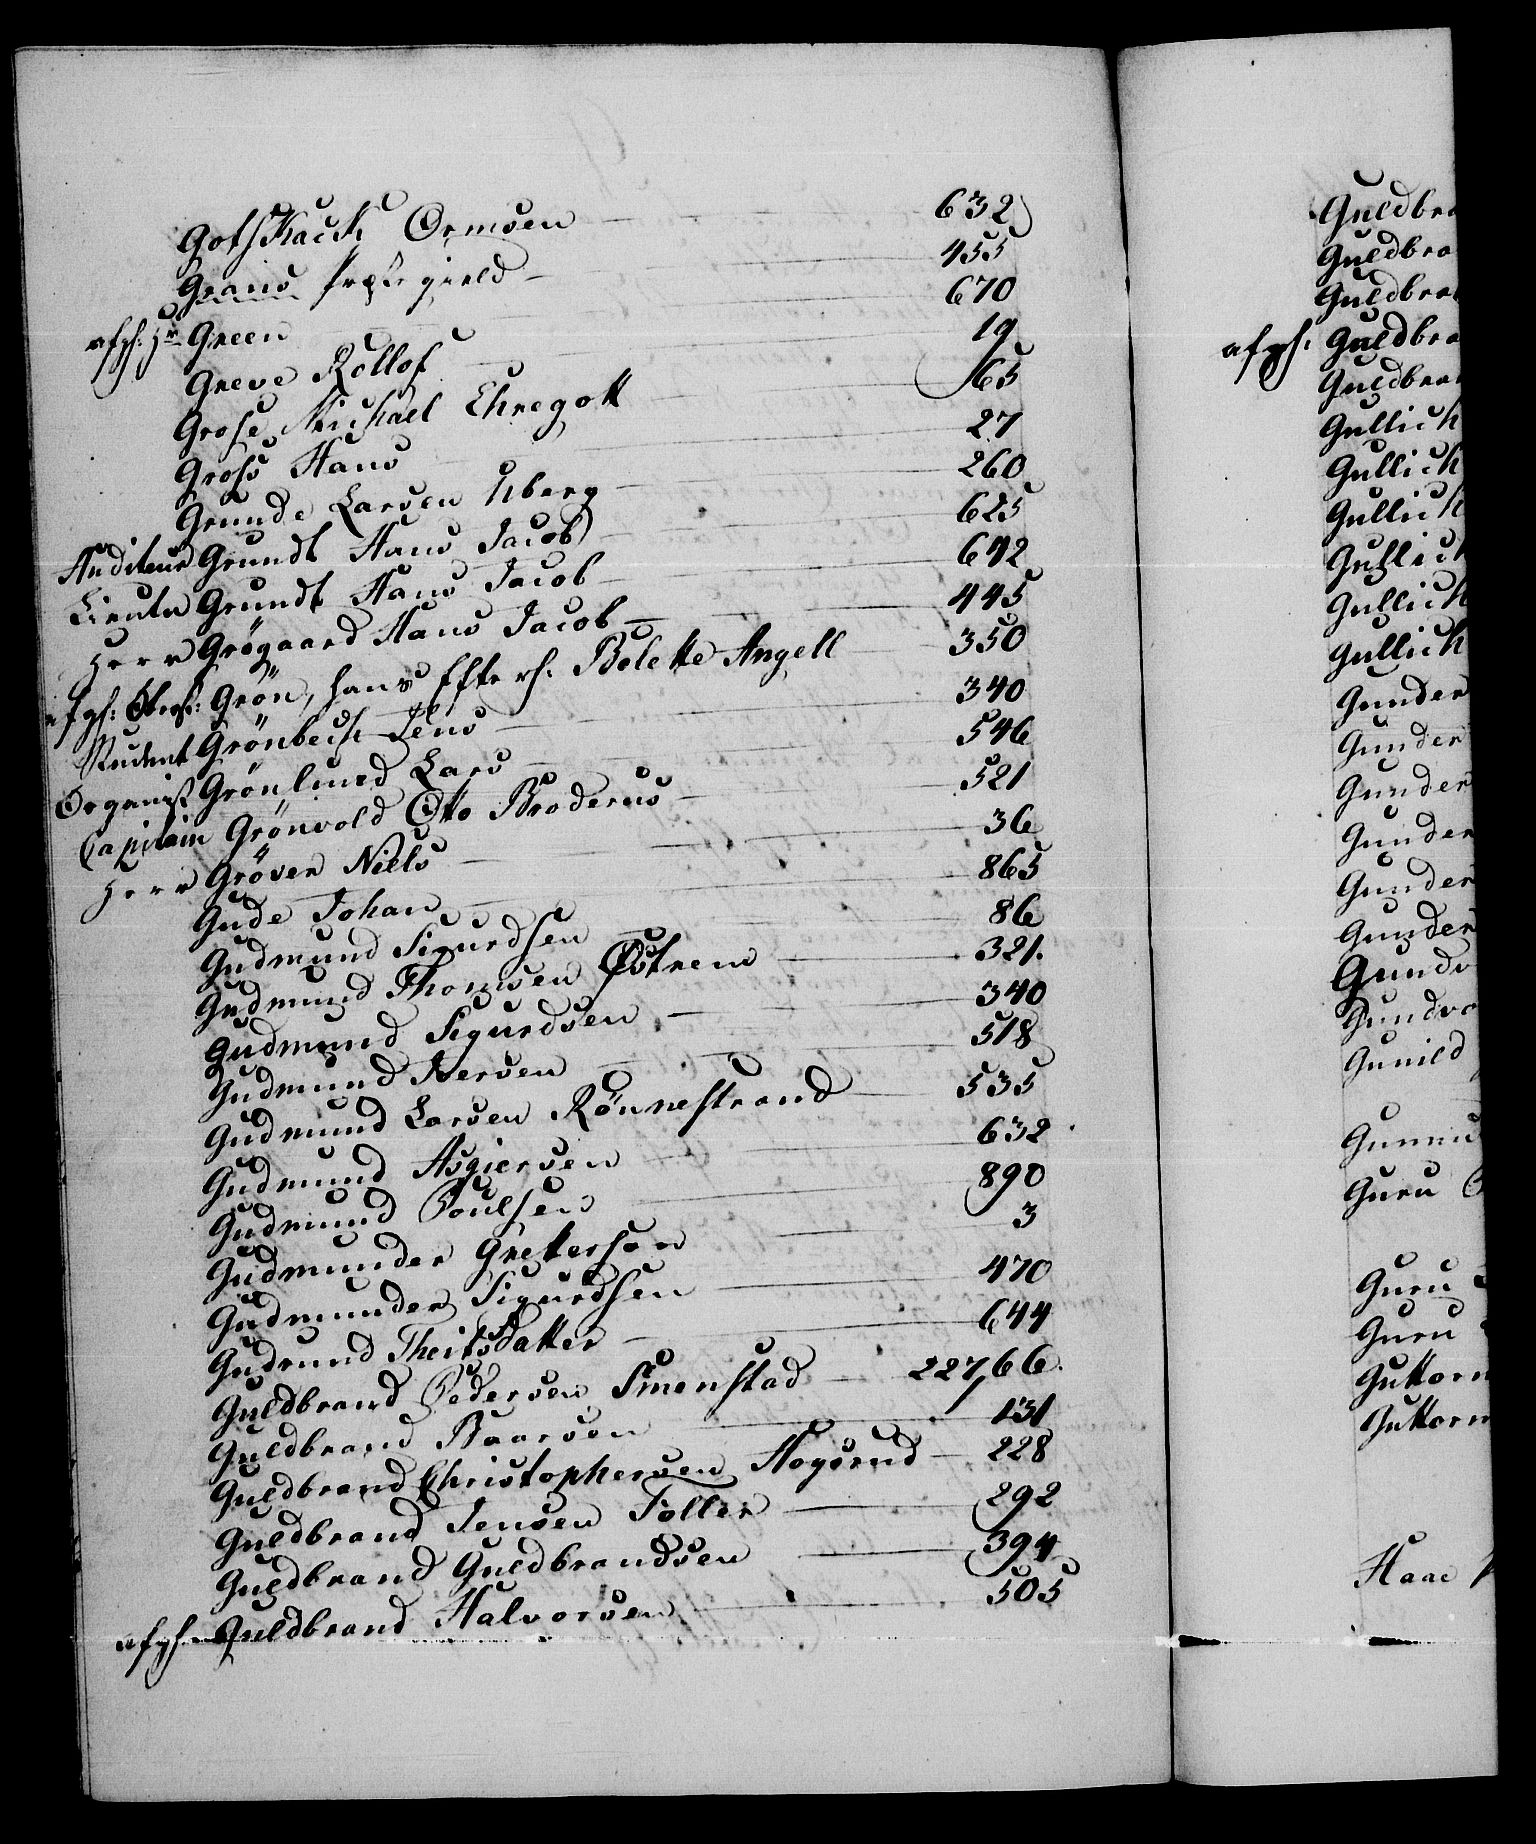 Gotskack Ormsen 632
Grans Præstegield 455
afgh: Hr Green 670
Greve Rollof 19
Grose Michael Ehregott 65
Gross Hans 27
Grunde Larsen Uberg 260
Auditeur Grundt Hans Jacob 625
Lieutn Grundt Hans Jacob 642
Herr Grögaard Hans Jacob 445
afgh: Grön, hans Efterl: Bolette Angell 350
Student Grönbech Jens 340
Organist Grönlund Lars 546
Capitain Grönvold Otto Broderus 521
Herr Gröver Niels 36
Gude Johan 865
Gudmund Sigurdsen 86
Gudmund Thomsen Østrem 321.
Gudmund Sigurdsen 340
Gudmund Iversen 518
Gudmund Larsen Rönnestrand 535
Gudmund Asgiersen 632
Gudmund Poulsen 890
Gudmunder Grettersen 3
Gudmunder Sigurdsen 470
Gudmund Theitsdatter 644
Guldbrand Pedersen Smenstad 227, 66.
Guldbrand Baarsen 131
Guldbrand Christophersen Hogsrud 228
Guldbrand Jensen Toller 292
Guldbrand Guldbrandsen 394
afgh. Guldbrand Halvorsen 505
Guldbra
Guldbra
Guldbra
afgh. Guldbra
Guldbra
Gullich
Gullich
Gullich
Gullich
Gullich
Gullich
Gunder
Gunder
Gunder
Gunder
Gunder
Gunder
Gundv
Gundvo
Gunild
Gunnu
Guru
Guru
Guru
Guttorm
Guttorm
Haae